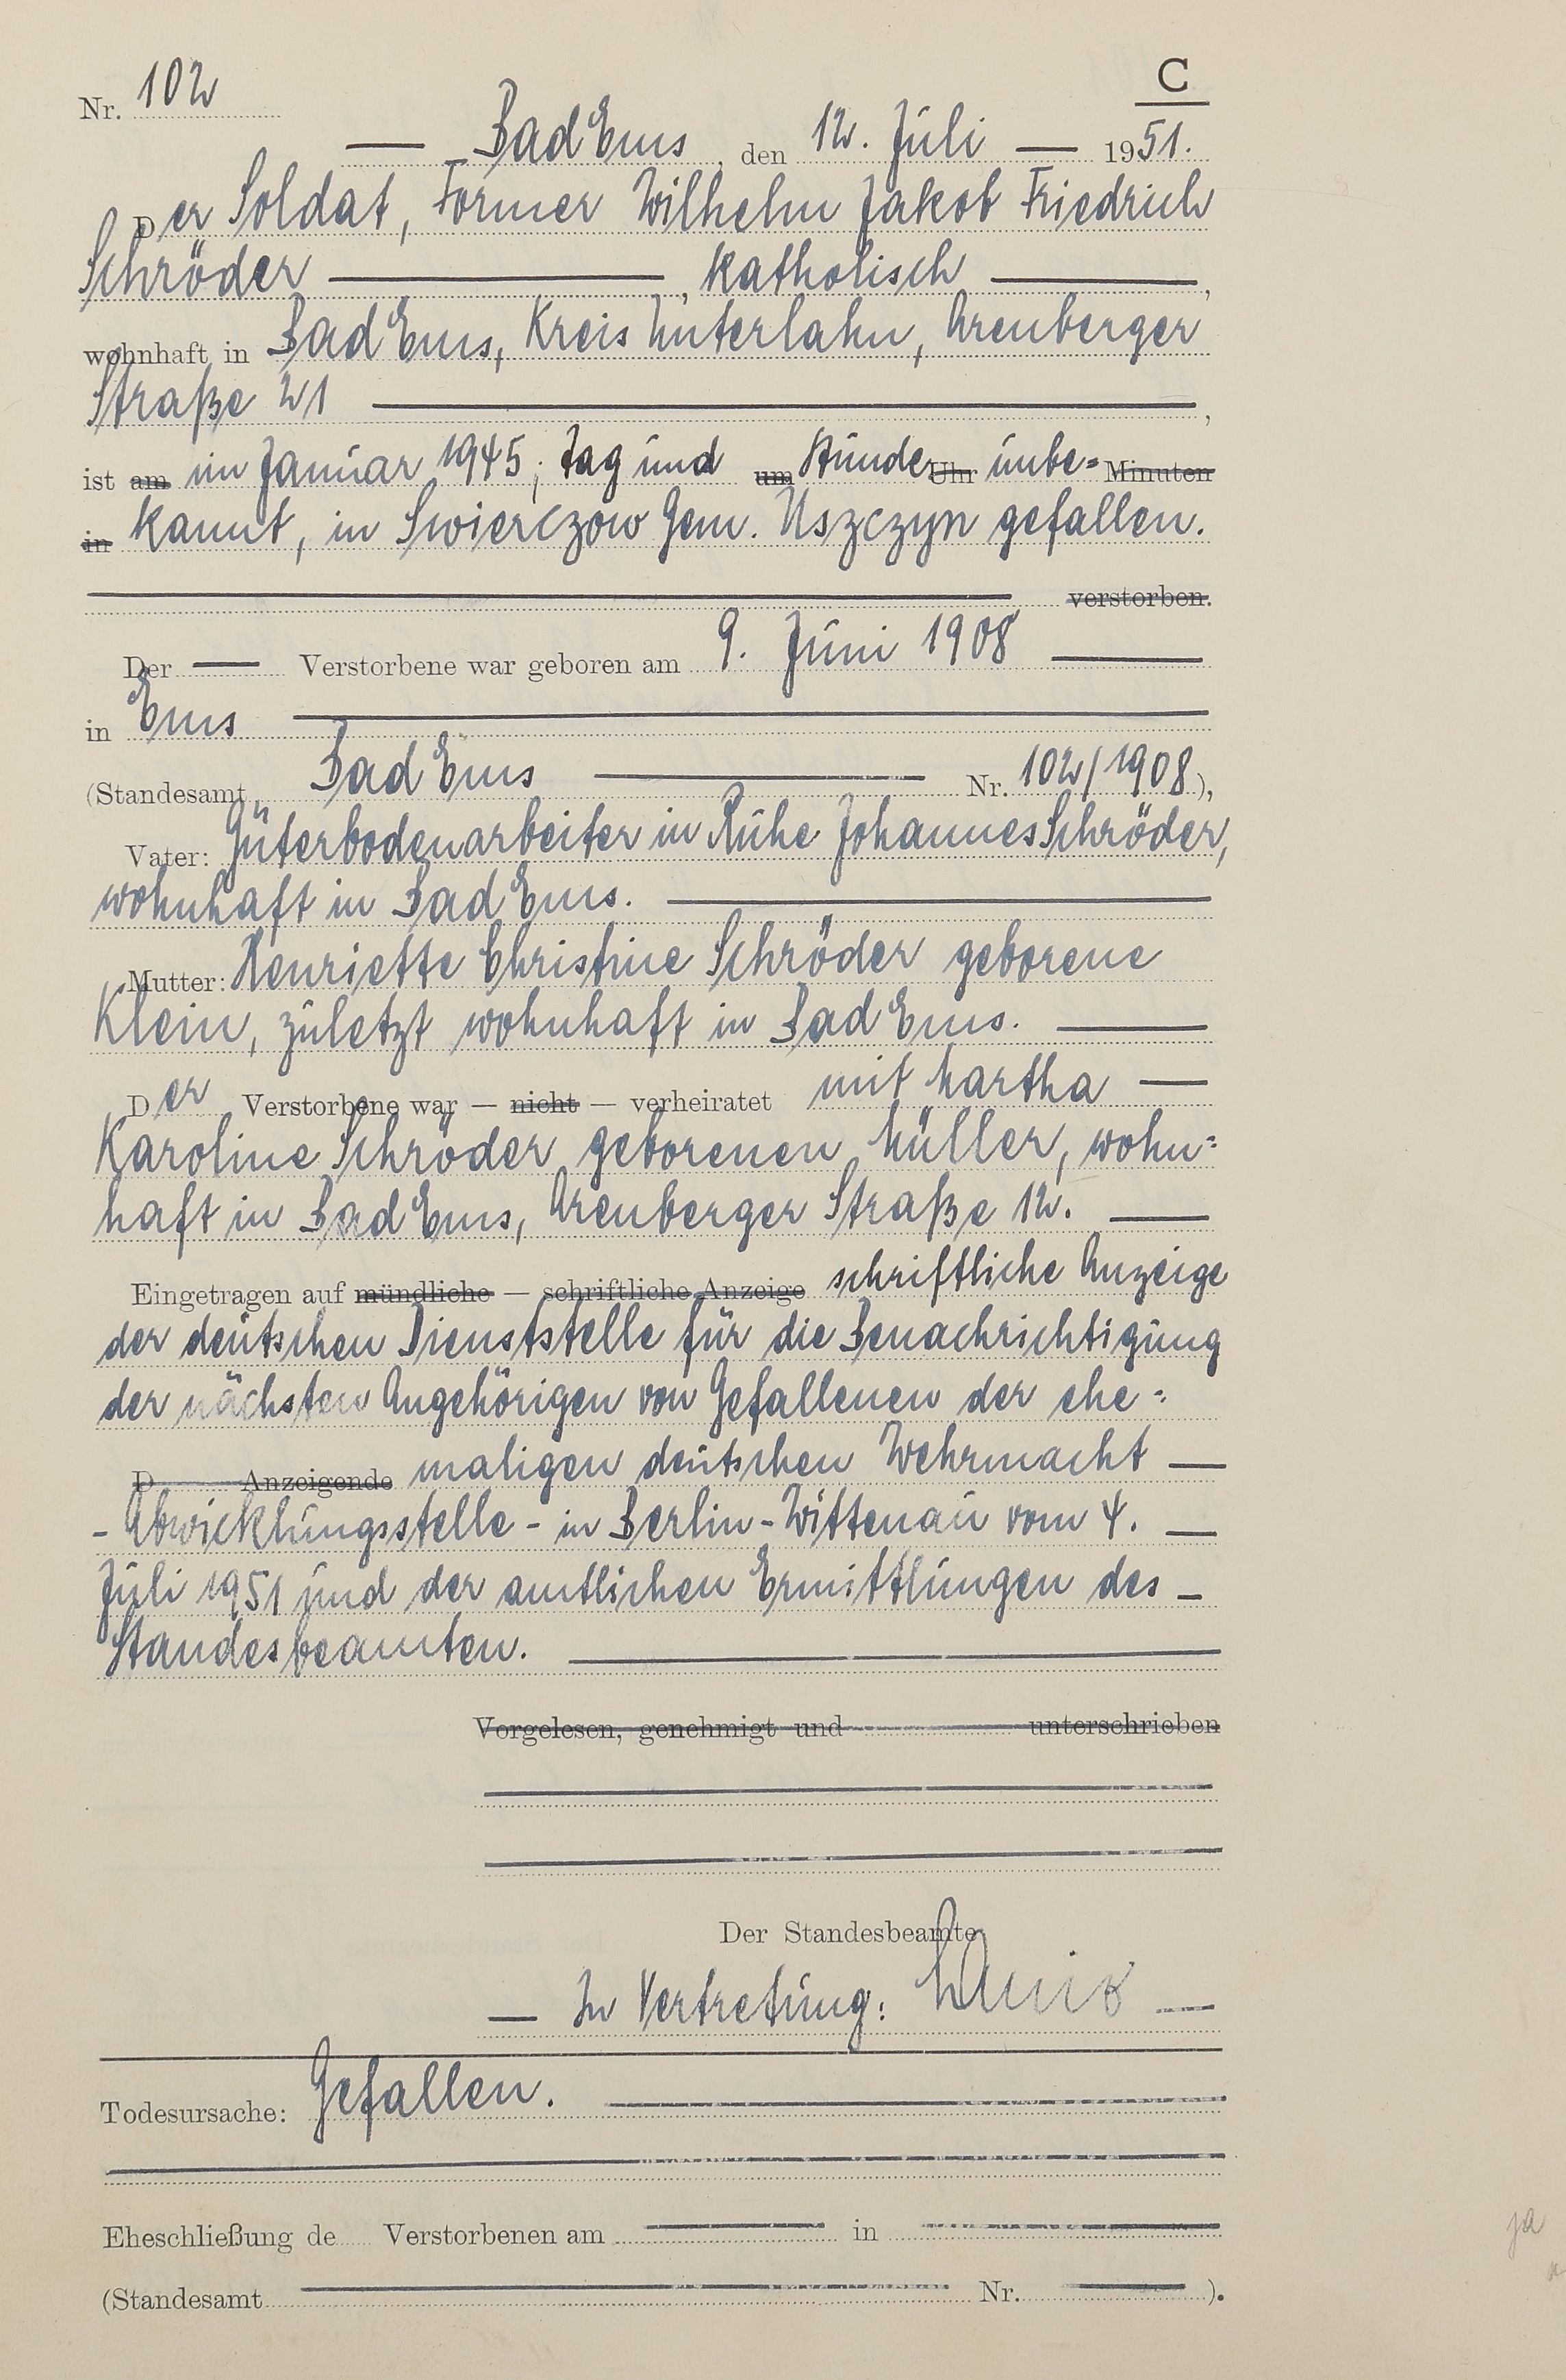 Nr. 102
C
Bad Ems, den 12. Juli 1951.
Der Soldat, Former Wilhelm Jakob Friedrich
Schröder, katholisch,
wohnhaft in Bad Ems, Kreis Unterlahn, Arenberger
Straße 21,
ist am im Januar 1945; Tag und um Stunde Uhr unbe= Minuten
in kannt, in Swierczow Gem. Uszczyn gefallen.
verstorben.
Der — Verstorbene war geboren am 9. Juni 1908
in Ems
(Standesamt Bad Ems Nr. 102/1908),
Vater: Güterbodenarbeiter in Ruhe Johannes Schröder,
wohnhaft in Bad Ems.
Mutter: Henriette Christine Schröder geborene
Klein, zuletzt wohnhaft in Bad Ems.
Der Verstorbene war — nicht — verheiratet mit Martha
Karoline Schröder geborenen Müller, wohn=
haft in Bad Ems, Arenberger Straße 12.
Eingetragen auf mündliche — schriftliche Anzeige schriftliche Anzeige
der deutschen Dienststelle für die Benachrichtigung
der nächsten Angehörigen von Gefallenen der ehe=
D Anzeigende maligen deutschen Wehrmacht —
- Abwicklungsstelle - in Berlin-Wittenau vom 4. —
Juli 1951 und der amtlichen Ermittlungen des —
Standesbeamten.
Vorgelesen, genehmigt und unterschrieben
Der Standesbeamte
— In Vertretung:
Todesursache: Gefallen.
Eheschließung de Verstorbenen am — in —
(Standesamt — Nr. — ).
ja